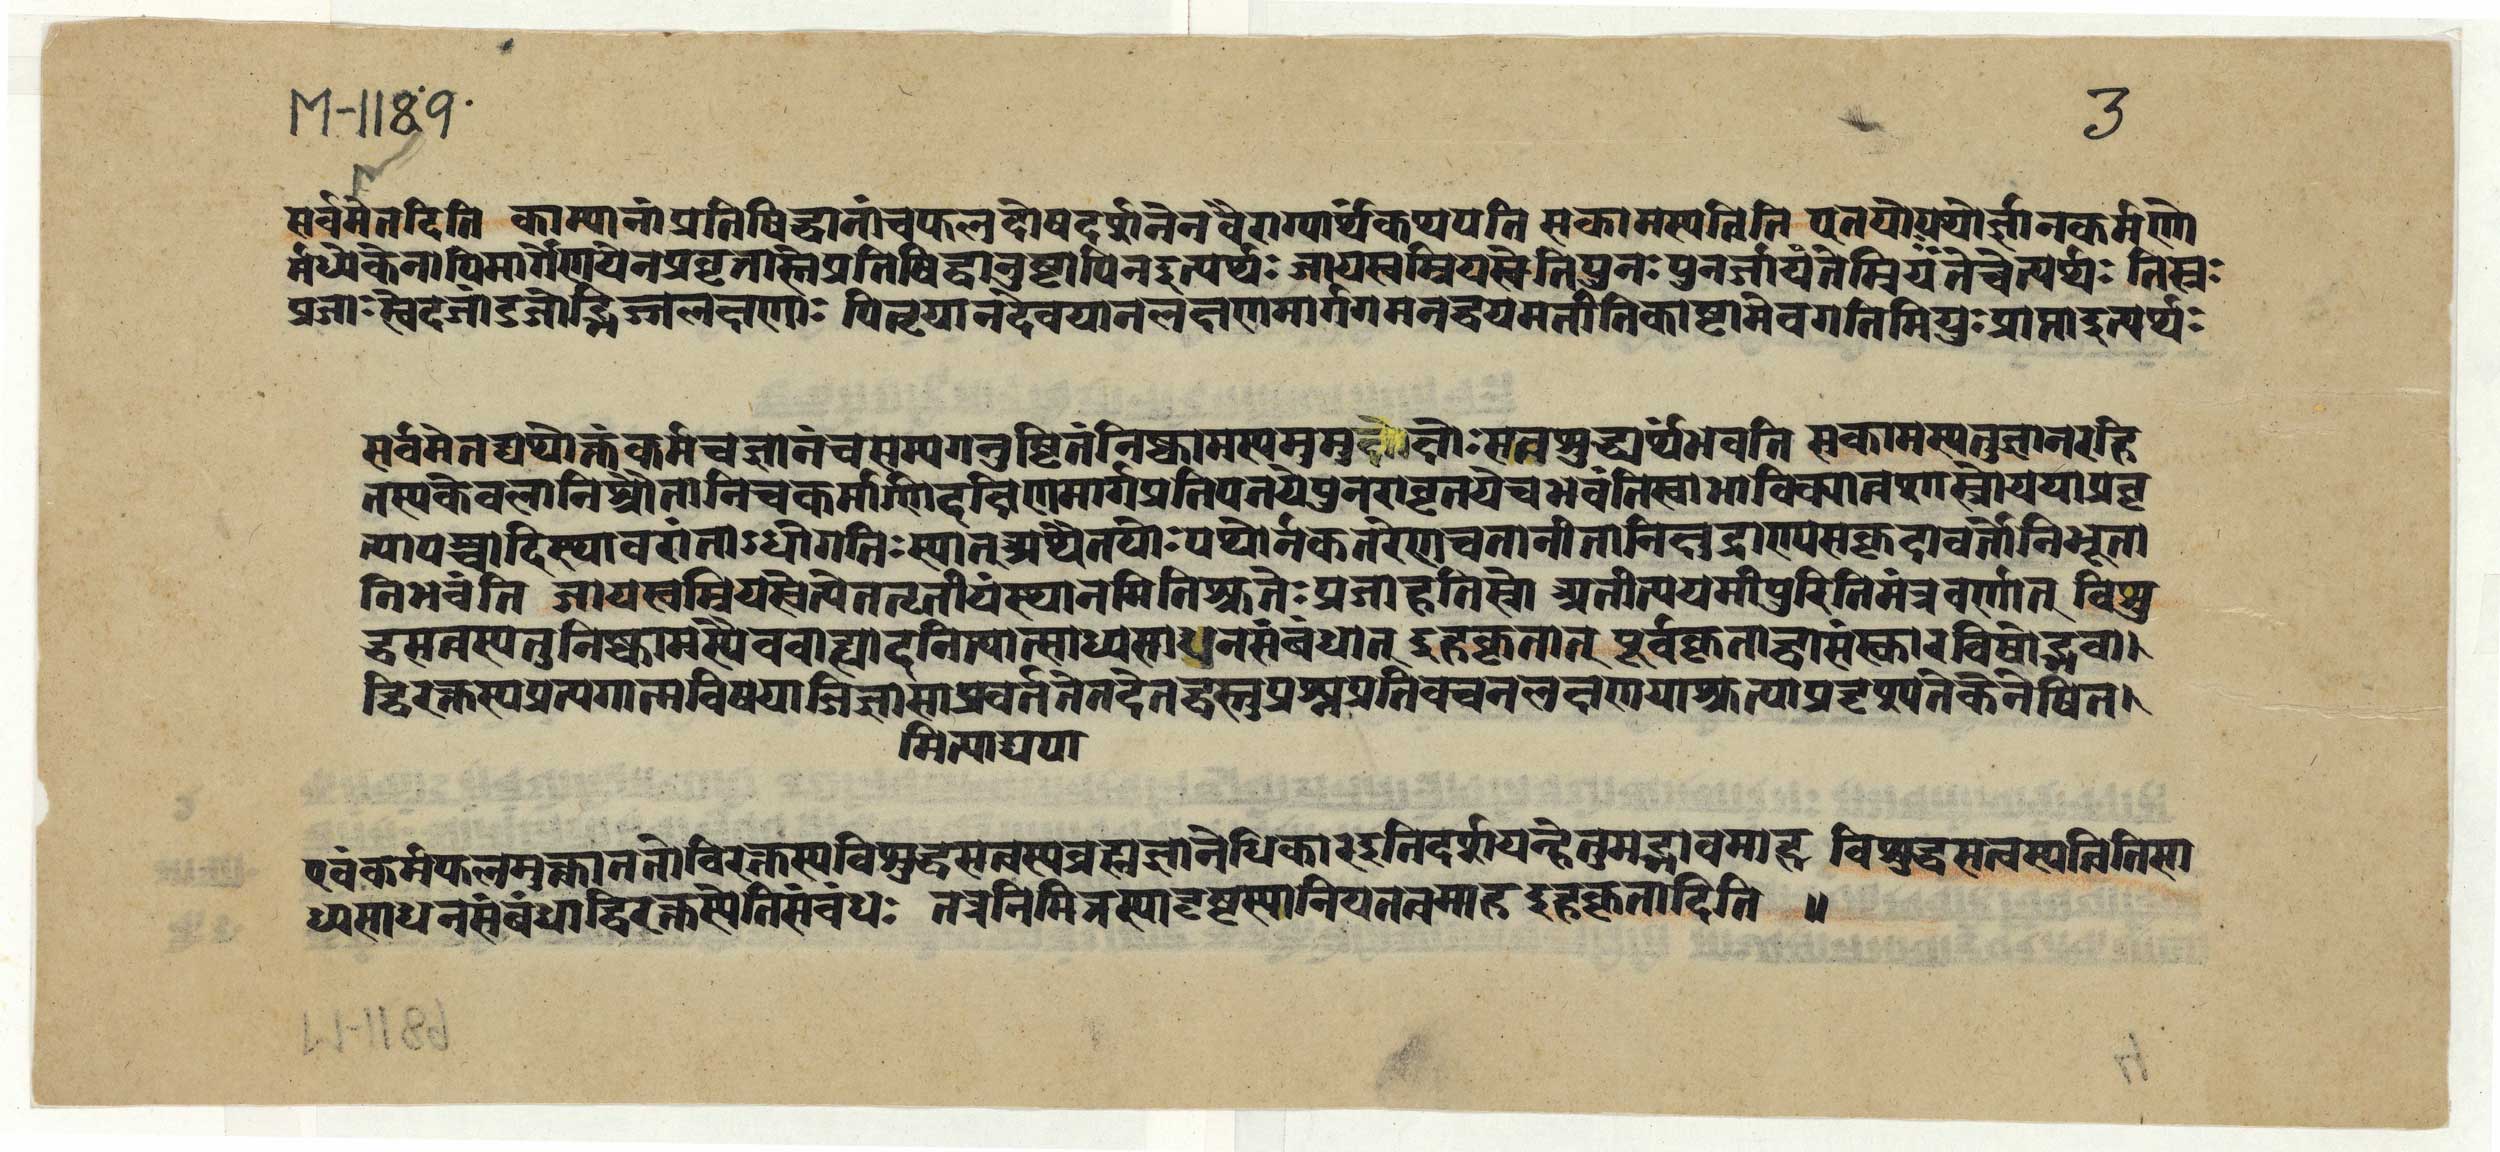 M-1189.
3
सर्वमेतदिति काम्यानां प्रतिषिद्धानांचफलदोषदर्शनेनवैराग्यार्थंकथयति सकामस्यत्विति एतयोःपथोर्ज्ञानकर्मणो
र्मध्येकेनापिमार्गेणयेनप्रवृतास्तेप्रतिषिद्धानुष्ठायिनइत्यर्थः जायस्वम्रियस्वेतिपुनःपुनर्जायंतेम्रियंतेचेत्यर्थः तिस्रः
प्रजाःस्वेदजांडजोद्भिज्जलक्षणाः पितृयानदेवयानलक्षणमार्गगमनद्वयमतीतिकाष्टामेवगतिमियुःप्राप्ताइत्यर्थः
सर्वमेतद्यथोक्तंकर्मचज्ञानंचसम्यगनुष्ठितंनिष्कामस्यमुमुक्षोःसत्वशुद्ध्यर्थंभवति सकामस्यतुज्ञानरहि
तस्यकेवलानिश्रौतानिचकर्माणिदक्षिणमार्गप्रतिपतयेपुनरावृतयेचभवंतिस्वाभाविक्यात्वशास्त्रीययाप्रवृ
त्यापश्वादिस्थावरांताऽधोगतिःस्यात्अथैतयोःपथोर्नकतरेणचतानीतानिक्षुद्राण्यसकृदावर्तीनिभूता
निभवंति जायस्वम्रियस्वेत्येततृतीयंस्थानमितिश्रुतेःप्रजाहतिस्रो अतीत्ययमीयुरितिमंत्रवर्णात् विशु
द्धसत्वस्यतुनिष्कामस्यैवबाह्यादनित्यात्साध्यसाधनसंबंधात् इहकृतात् पूर्वकृताद्वासंस्कारविषोद्भवा।
द्विरक्तस्यप्रत्यगात्मविषयाजिज्ञासाप्रवर्ततेतदेतद्वस्तुप्रश्नप्रतिवचनलक्षणयाश्रुत्याप्रदृश्यतेकेनेषित।
मित्याद्यया
एवंकर्मफलमुक्त्वाततोविरक्तस्यविशुद्धसत्वस्यब्रह्मज्ञानेधिकारइतिदर्शयन्हेतुमद्भावमाह विशुद्धसत्वस्यत्वितिसा
ध्यसाधनसंबंधाद्विरक्तस्येतिसंबंधः तत्रनिमित्तस्यादृष्टस्यानियतत्वमाह इहकृतादिति ॥